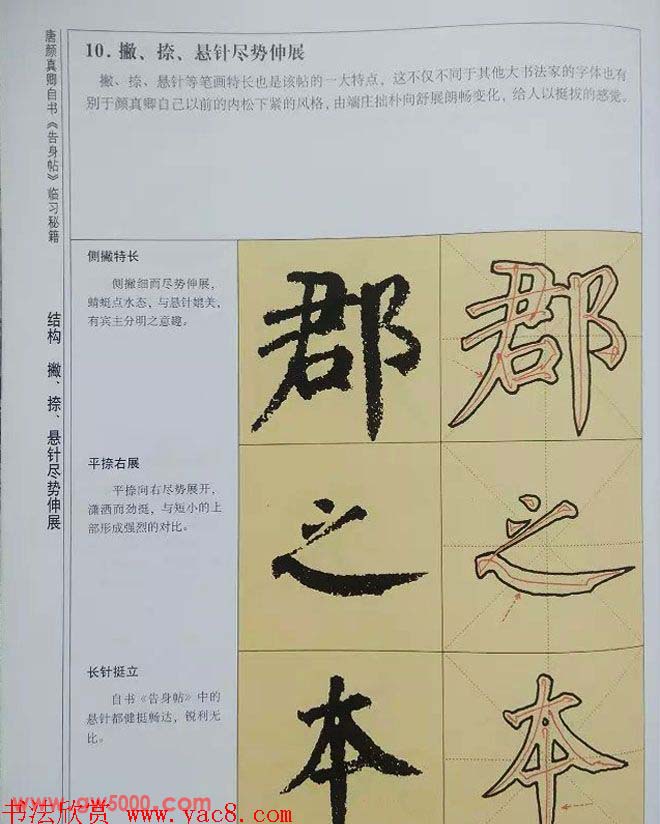 唐颜真卿自书《告身帖》临习秘籍
结构 撇、捺、悬针尽势伸展
10. 撇、捺、悬针尽势伸展
撇、捺、悬针等笔画特长也是该帖的一大特点，这不仅不同于其他大书法家的字体也有
别于颜真卿自己以前的内松下紧的风格，由端庄拙朴向舒展朗畅变化，给人以挺拔的感觉。
侧撇特长
侧撇细而尽势伸展，
蜻蜓点水态，与悬针媲美，
有宾主分明之意趣。
郡 郡
平捺右展
平捺向右尽势展开，
潇洒而劲挺，与短小的上
部形成强烈的对比。
之 之
长针挺立
自书《告身帖》中的
悬针都健挺畅达，锐利无
比。
本 本
www.gw5000.com
书法欣赏 www.yac8.com